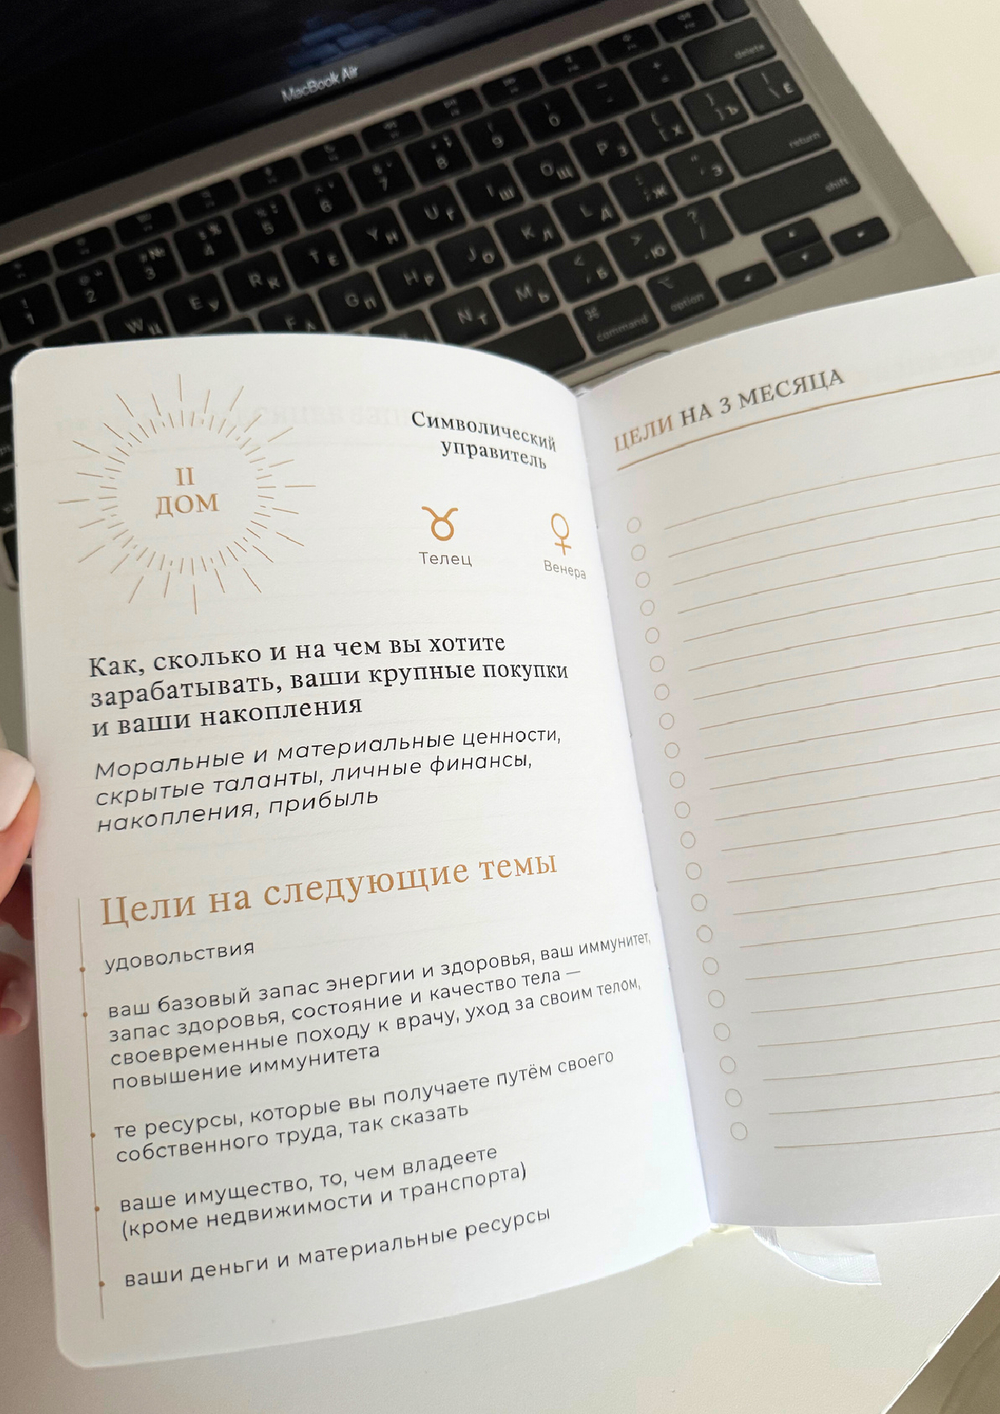 MacBook Air
delete
return
shift
command
option
II
ДОМ
Символический
управитель
Телец
Венера
Как, сколько и на чем вы хотите
зарабатывать, ваши крупные покупки
и ваши накопления
Моральные и материальные ценности,
скрытые таланты, личные финансы,
накопления, прибыль
Цели на следующие темы
удовольствия
ваш базовый запас энергии и здоровья, ваш иммунитет,
запас здоровья, состояние и качество тела —
своевременные походу к врачу, уход за своим телом,
повышение иммунитета
те ресурсы, которые вы получаете путём своего
собственного труда, так сказать
ваше имущество, то, чем владеете
(кроме недвижимости и транспорта)
ваши деньги и материальные ресурсы
ЦЕЛИ НА 3 МЕСЯЦА